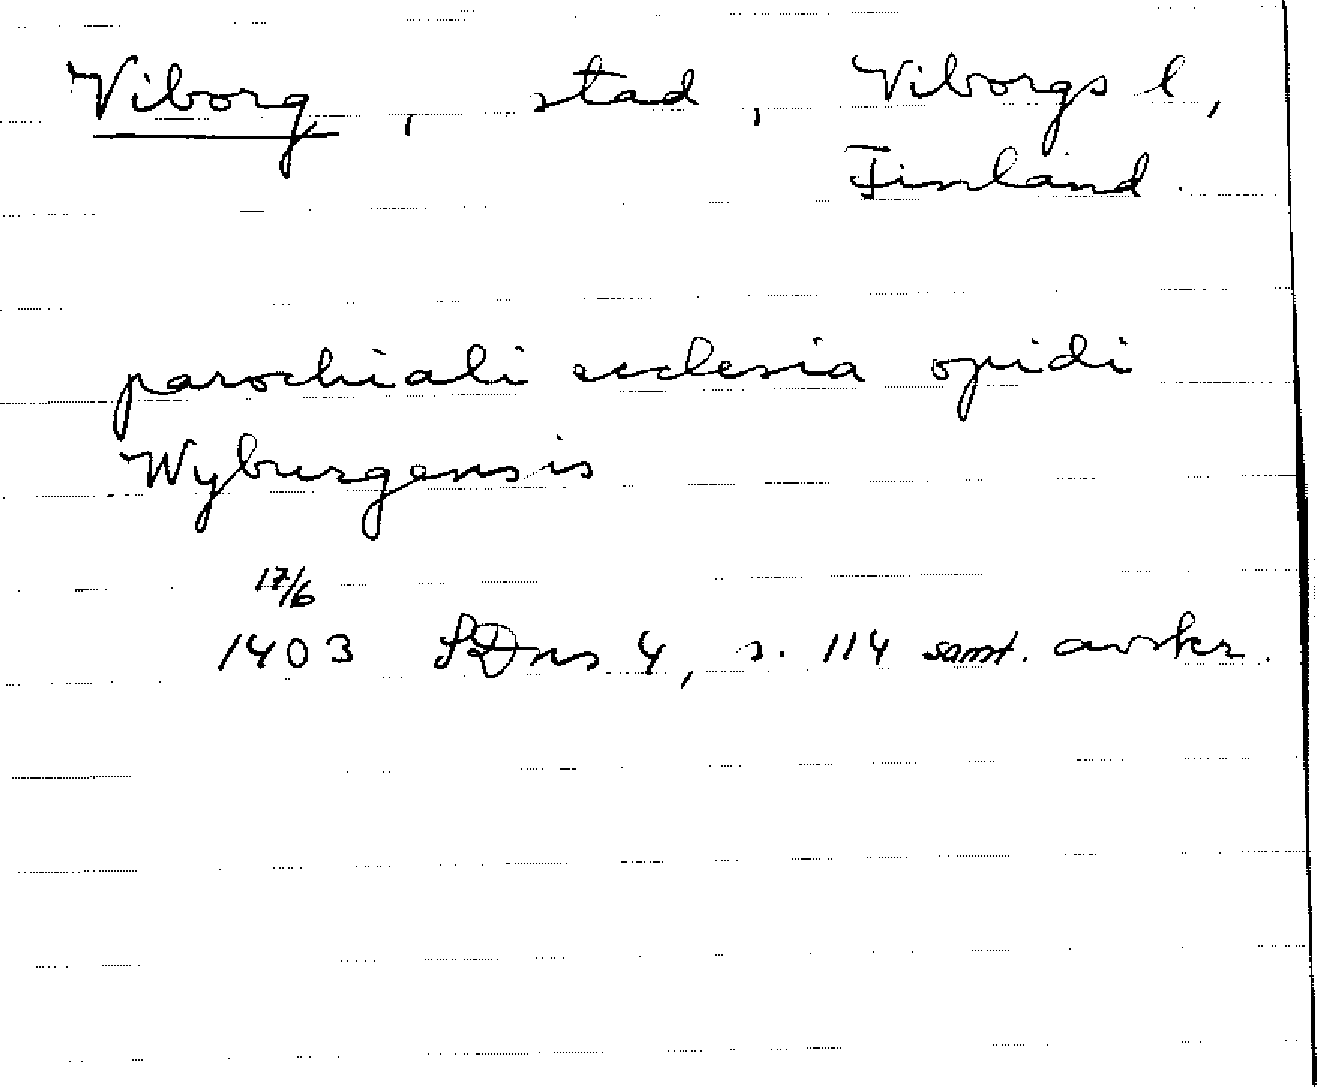 Viborg, stad, Viborgs l,
Finland.
parochiali ecclesia opidi
Wyburgensis
17/6
1403 SDns 4, s. 114 samt. avskr.